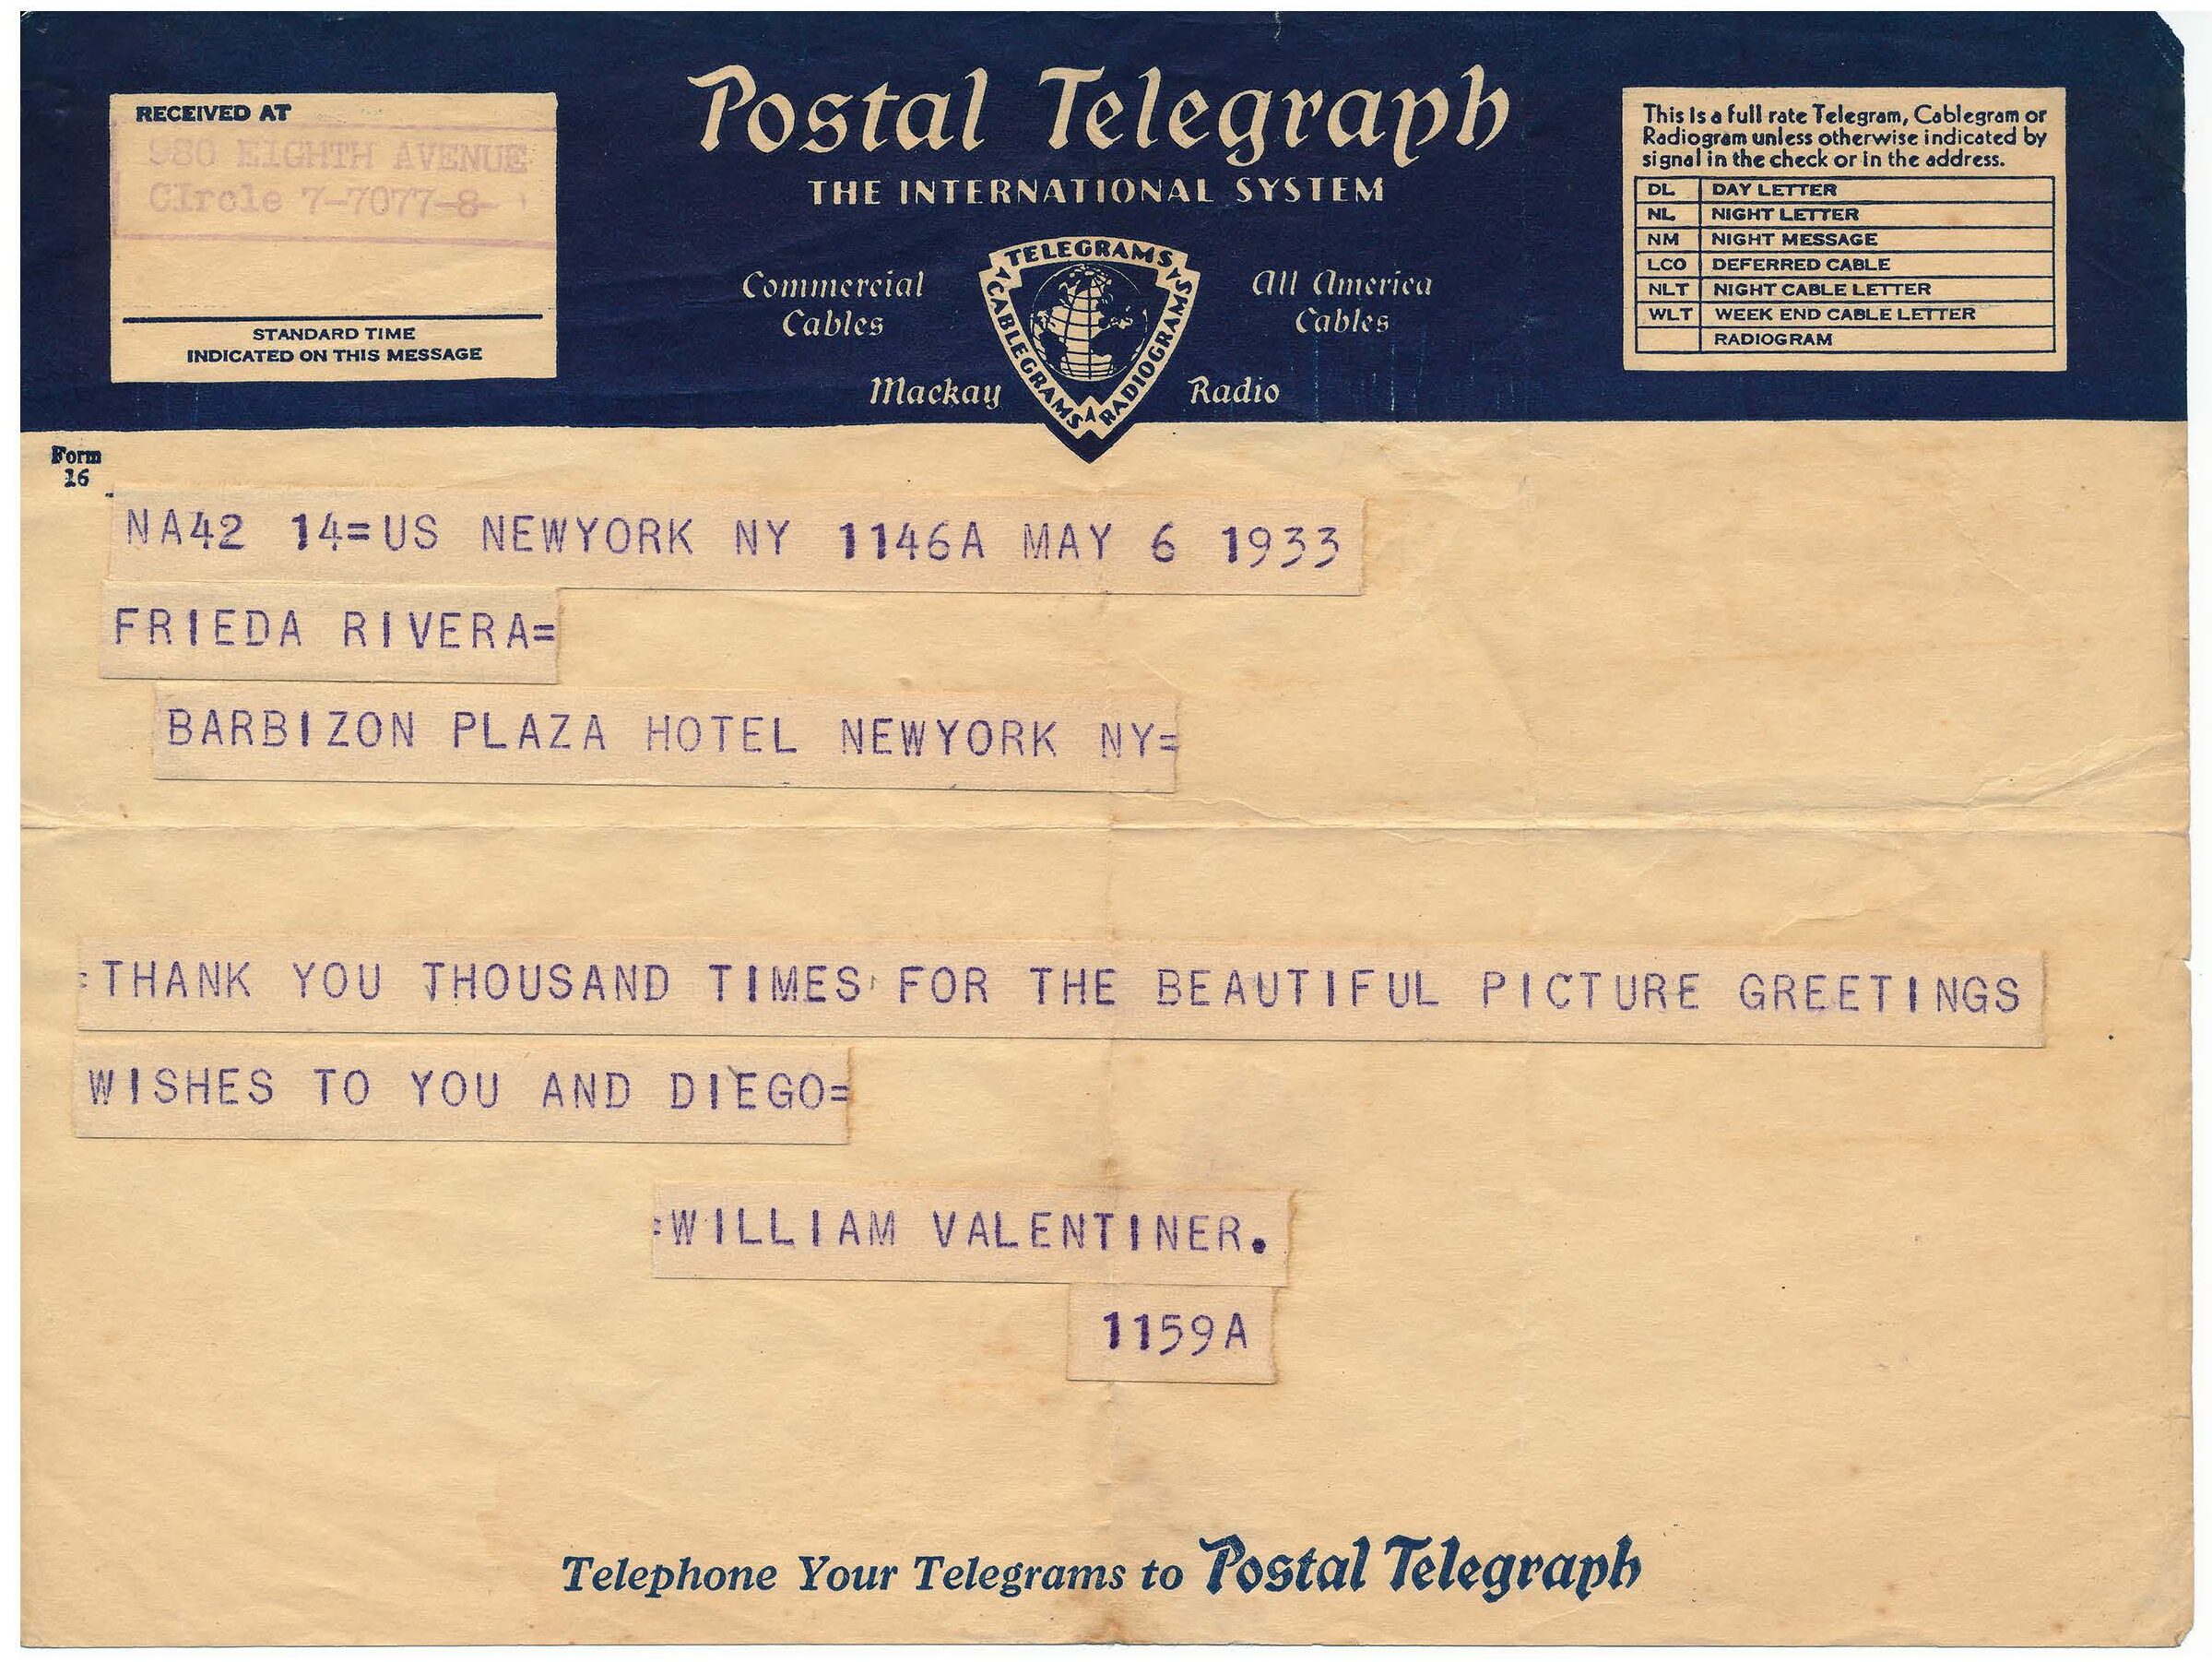 RECEIVED AT
980 EIGHTH AVENUE
CIrcle 7-7077-8-
STANDARD TIME
INDICATED ON THIS MESSAGE
Postal Telegraph
THE INTERNATIONAL SYSTEM
Commercial
Cables
All America
Cables
Mackay
Radio
TELEGRAMS
CABLEGRAMS
RADIOGRAMS
This is a full rate Telegram, Cablegram or
Radiogram unless otherwise indicated by
signal in the check or in the address.
DL DAY LETTER
NL NIGHT LETTER
NM NIGHT MESSAGE
LCO DEFERRED CABLE
NLT NIGHT CABLE LETTER
WLT WEEK END CABLE LETTER
RADIOGRAM
Form
16
NA42 14=US NEWYORK NY 1146A MAY 6 1933
FRIEDA RIVERA=
BARBIZON PLAZA HOTEL NEWYORK NY=
=THANK YOU THOUSAND TIMES FOR THE BEAUTIFUL PICTURE GREETINGS
WISHES TO YOU AND DIEGO=
=WILLIAM VALENTINER.
1159A
Telephone Your Telegrams to Postal Telegraph